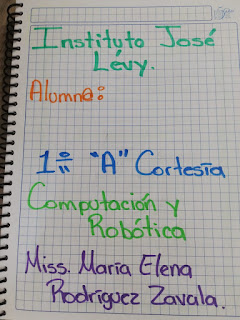 Instituto José
Lévy.
Alumna:
1º "A" Cortesía
Computación y
Robótica
Miss. María Elena
Rodríguez Zavala.